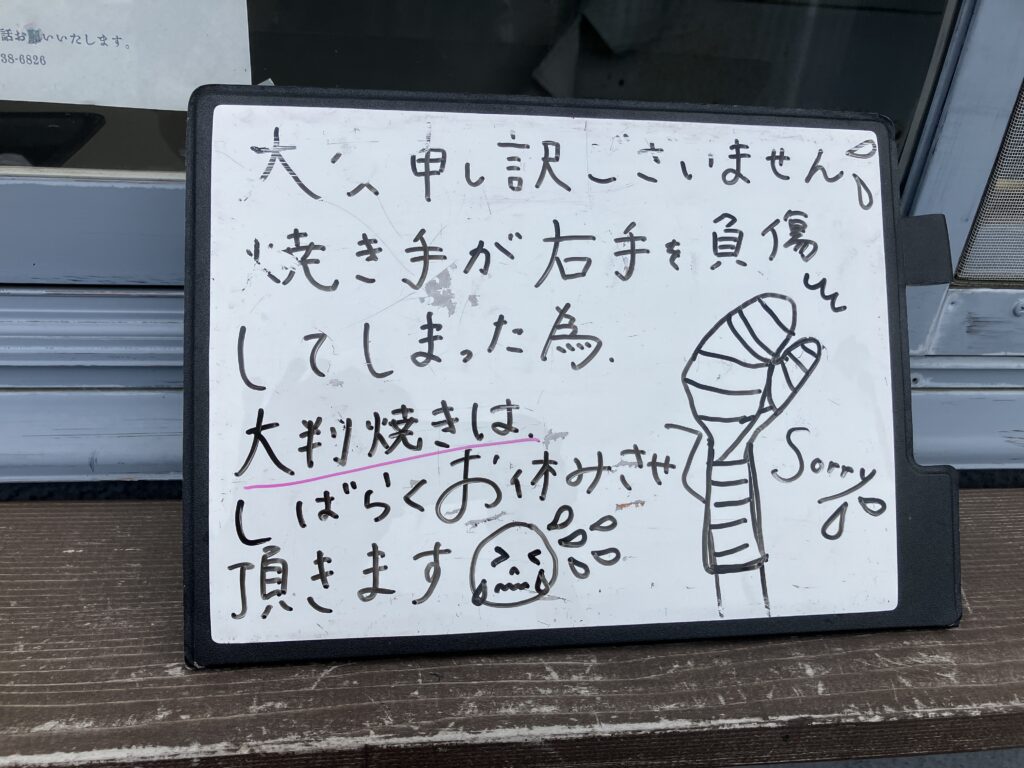 話お願いいたします。
38-6826
大へ申し訳ございません
焼き手が右手を負傷
してしまった為.
大判焼きは.
しばらくお休みさせ
頂きます
Sorry